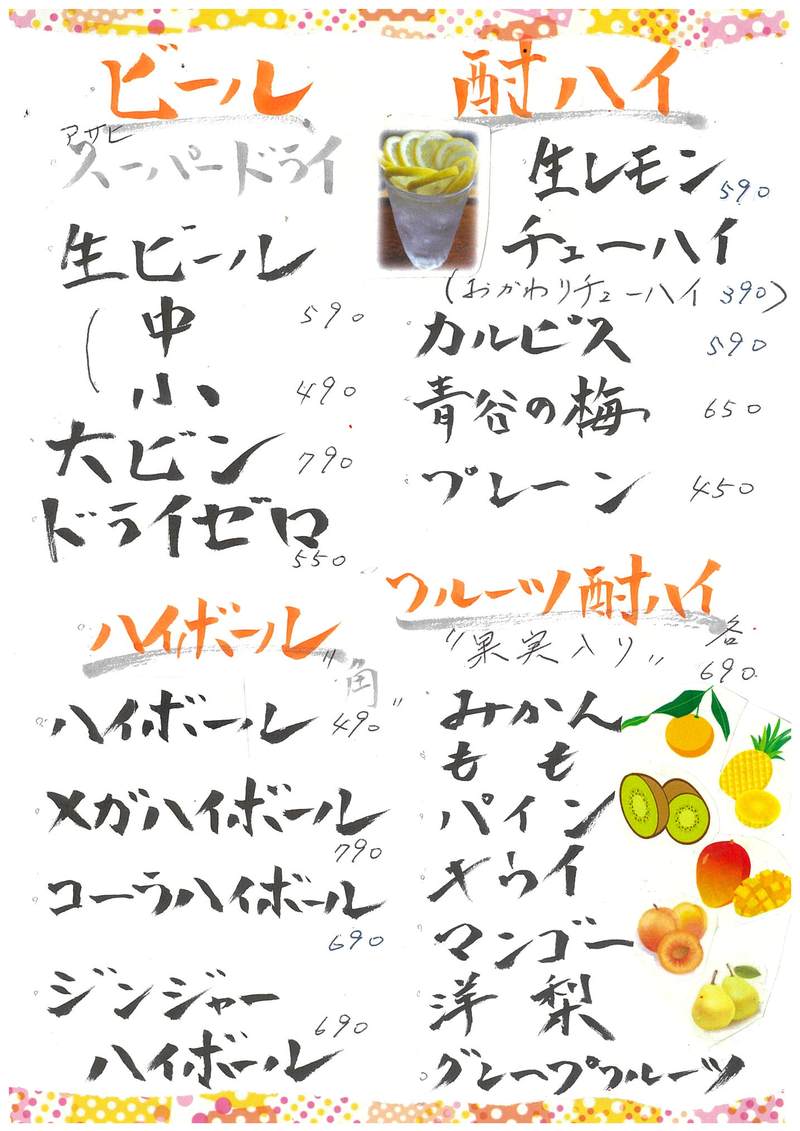 ビール
アサヒ
スーパードライ
生ビール
中 590
小 490
大ビン 790
ドライゼロ
550
ハイボール
"角"
ハイボール 490
メガハイボール
790
コーラハイボール
690
ジンジャー
ハイボール 690
酎ハイ
生レモン 590
チューハイ
(おかわりチューハイ 390)
カルピス 590
青谷の梅 650
プレーン 450
フルーツ酎ハイ
"果実入り" 各
690
みかん
もも
パイン
キウイ
マンゴー
洋梨
グレープフルーツ